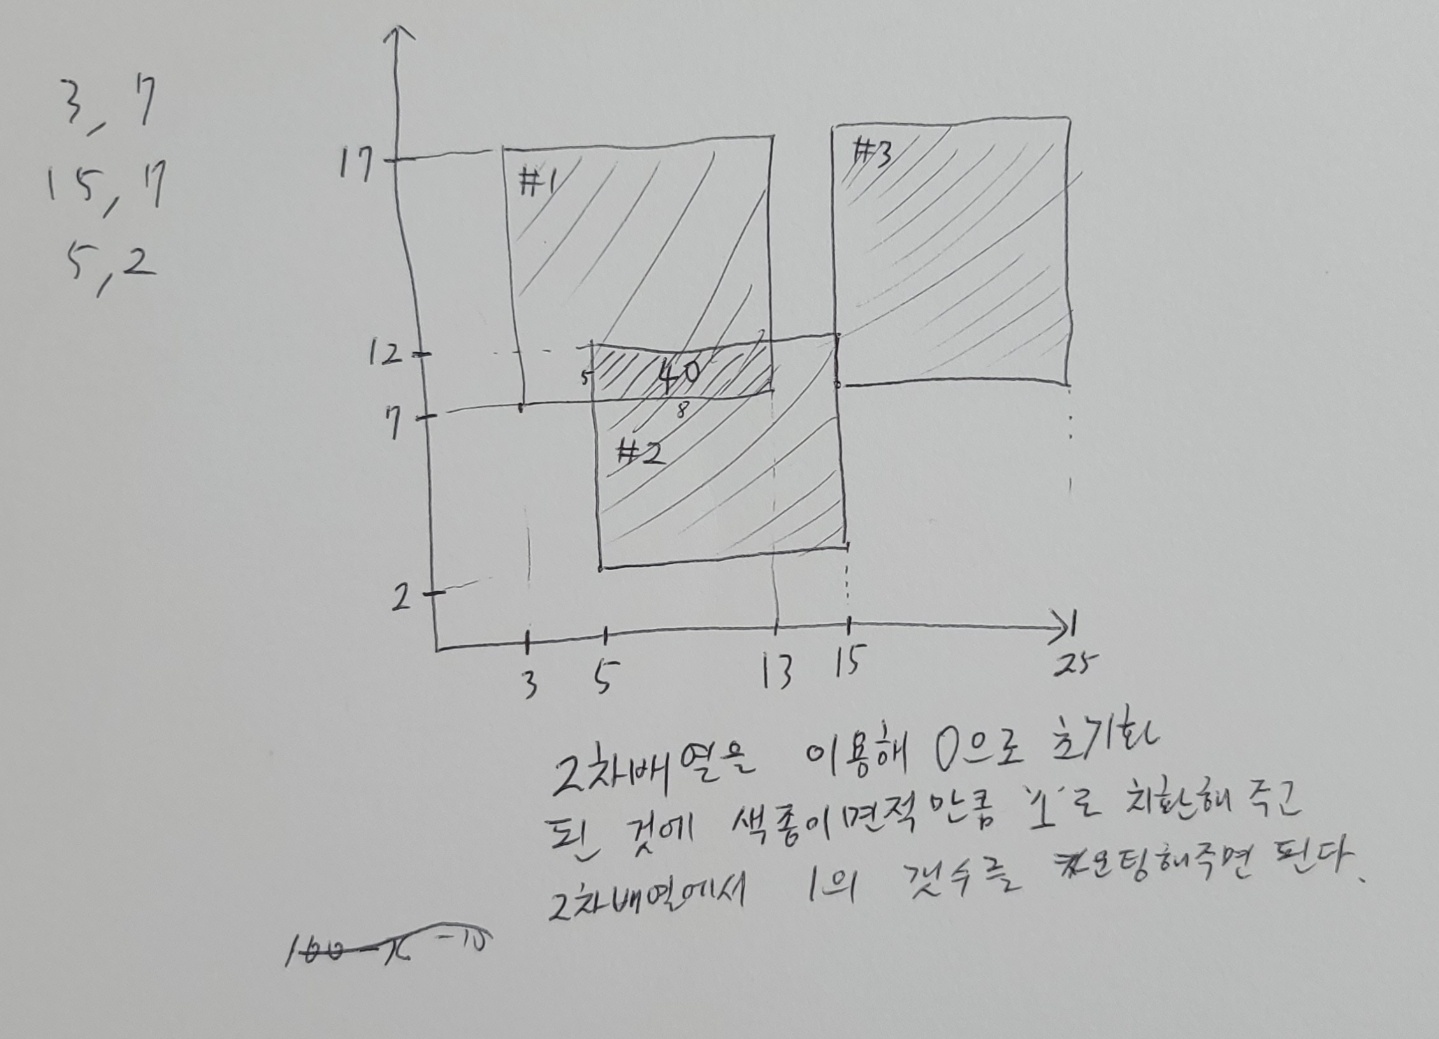 3, 7
15, 7
5, 2
17
#1
#3
12
5
40
7
8
#2
2
3
5
13
15
25
2차배열을 이용해 0으로 초기화
된 것에 색종이면적만큼 '1'로 치환해주고
2차배열에서 1의 갯수를 카운팅해주면 된다.